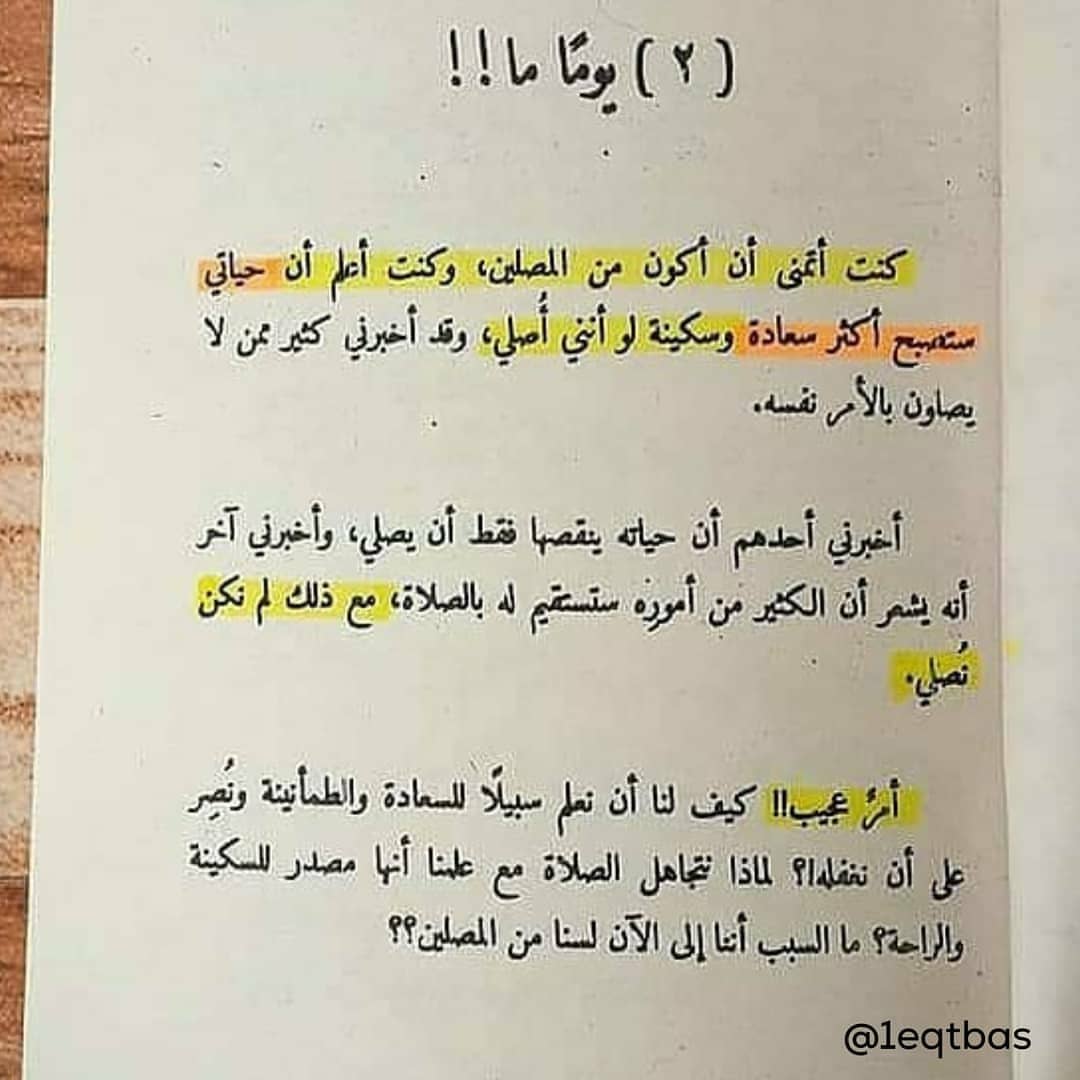 (٢) يومًا ما!!
كنت أتمنى أن أكون من المصلين، وكنت أعلم أن حياتي
ستصبح أكثر سعادة وسكينة لو أنني أُصلي، وقد أخبرني كثير ممن لا
يصلون بالأمر نفسه.
أخبرني أحدهم أن حياته ينقصها فقط أن يصلي، وأخبرني آخر
أنه يشعر أن الكثير من أموره ستستقيم له بالصلاة، مع ذلك لم نكن
نُصلي.
أمرٌ عجيب!! كيف لنا أن نعلم سبيلًا للسعادة والطمأنينة ونُصِر
على أن نغفله!؟ لماذا نتجاهل الصلاة مع علمنا أنها مصدر للسكينة
والراحة؟ ما السبب أننا إلى الآن لسنا من المصلين؟؟
@1eqtbas